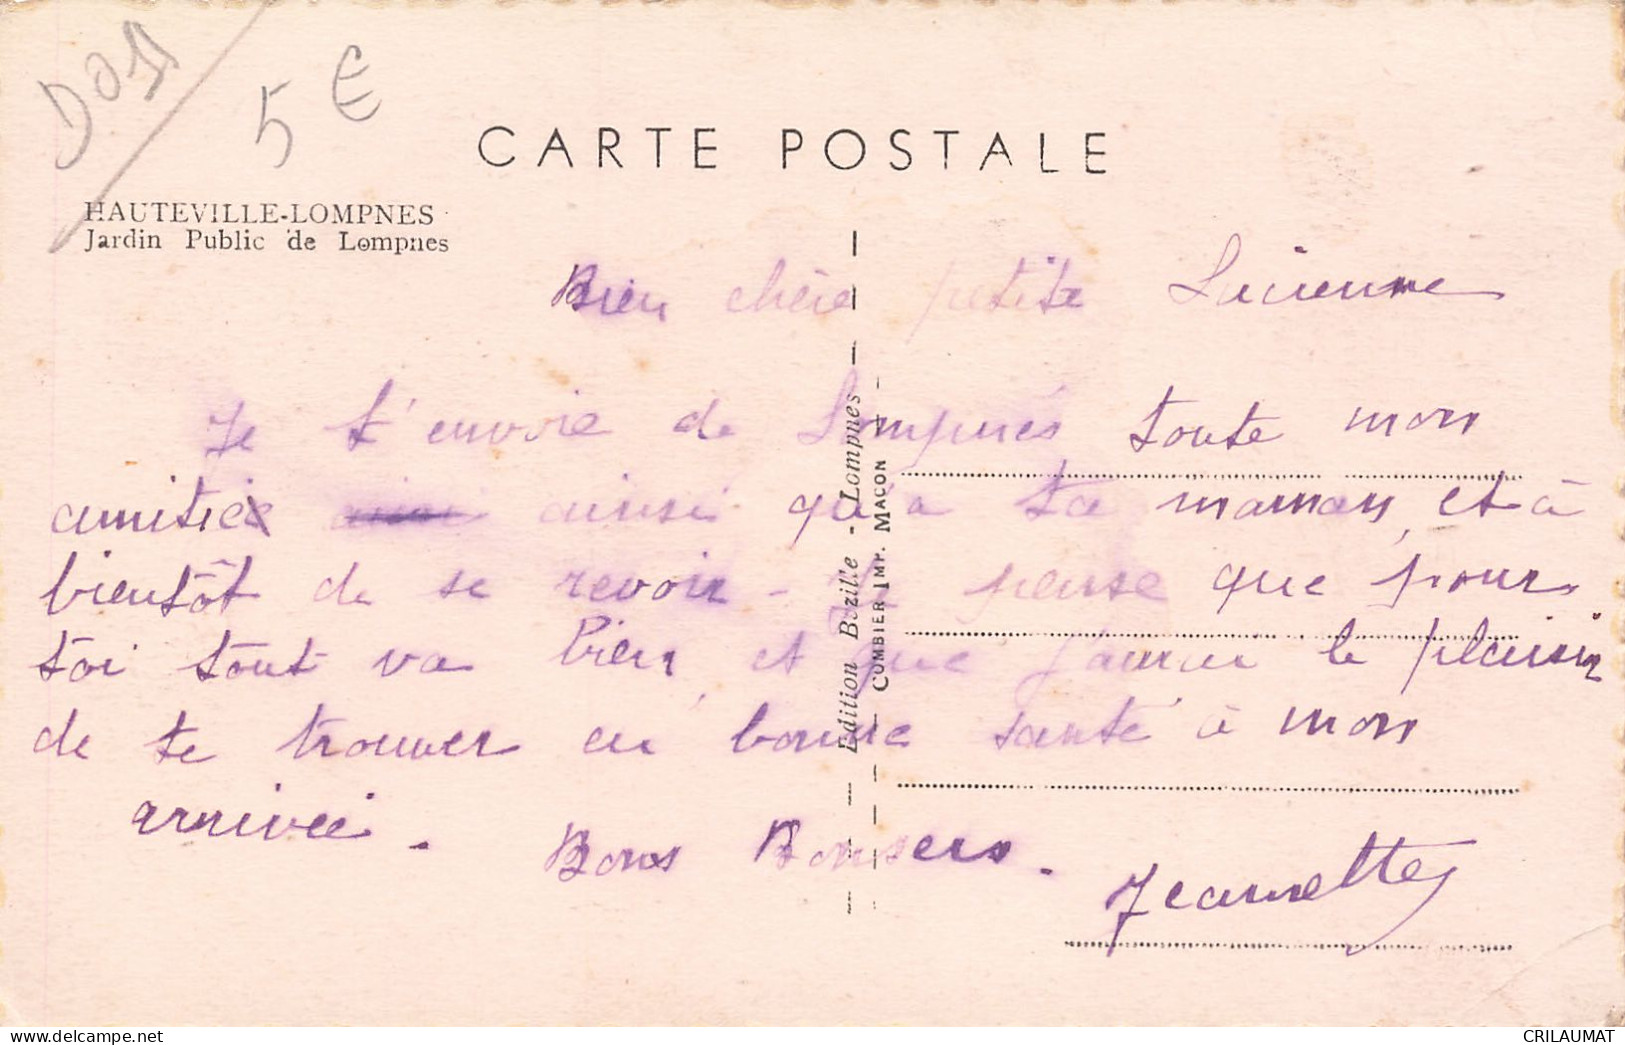 D01
5 €
CARTE POSTALE
HAUTEVILLE-LOMPNES
Jardin Public de Lompnes
Bien chère petite Lucienne
Je t'envoie de Lompnès toute mon
amitié ainsi qu'a ta maman, et à
bientôt de se revoir - Je pense que pour
toi tout va bien, et que j'aurai le plaisir
de te trouver en bonne santé à mon
arrivée.
Bons Baisers.
Jeannette
Edition Bazille - Lompnes
COMBIER IMP. MACON
www.delcampe.net
CRILAUMAT